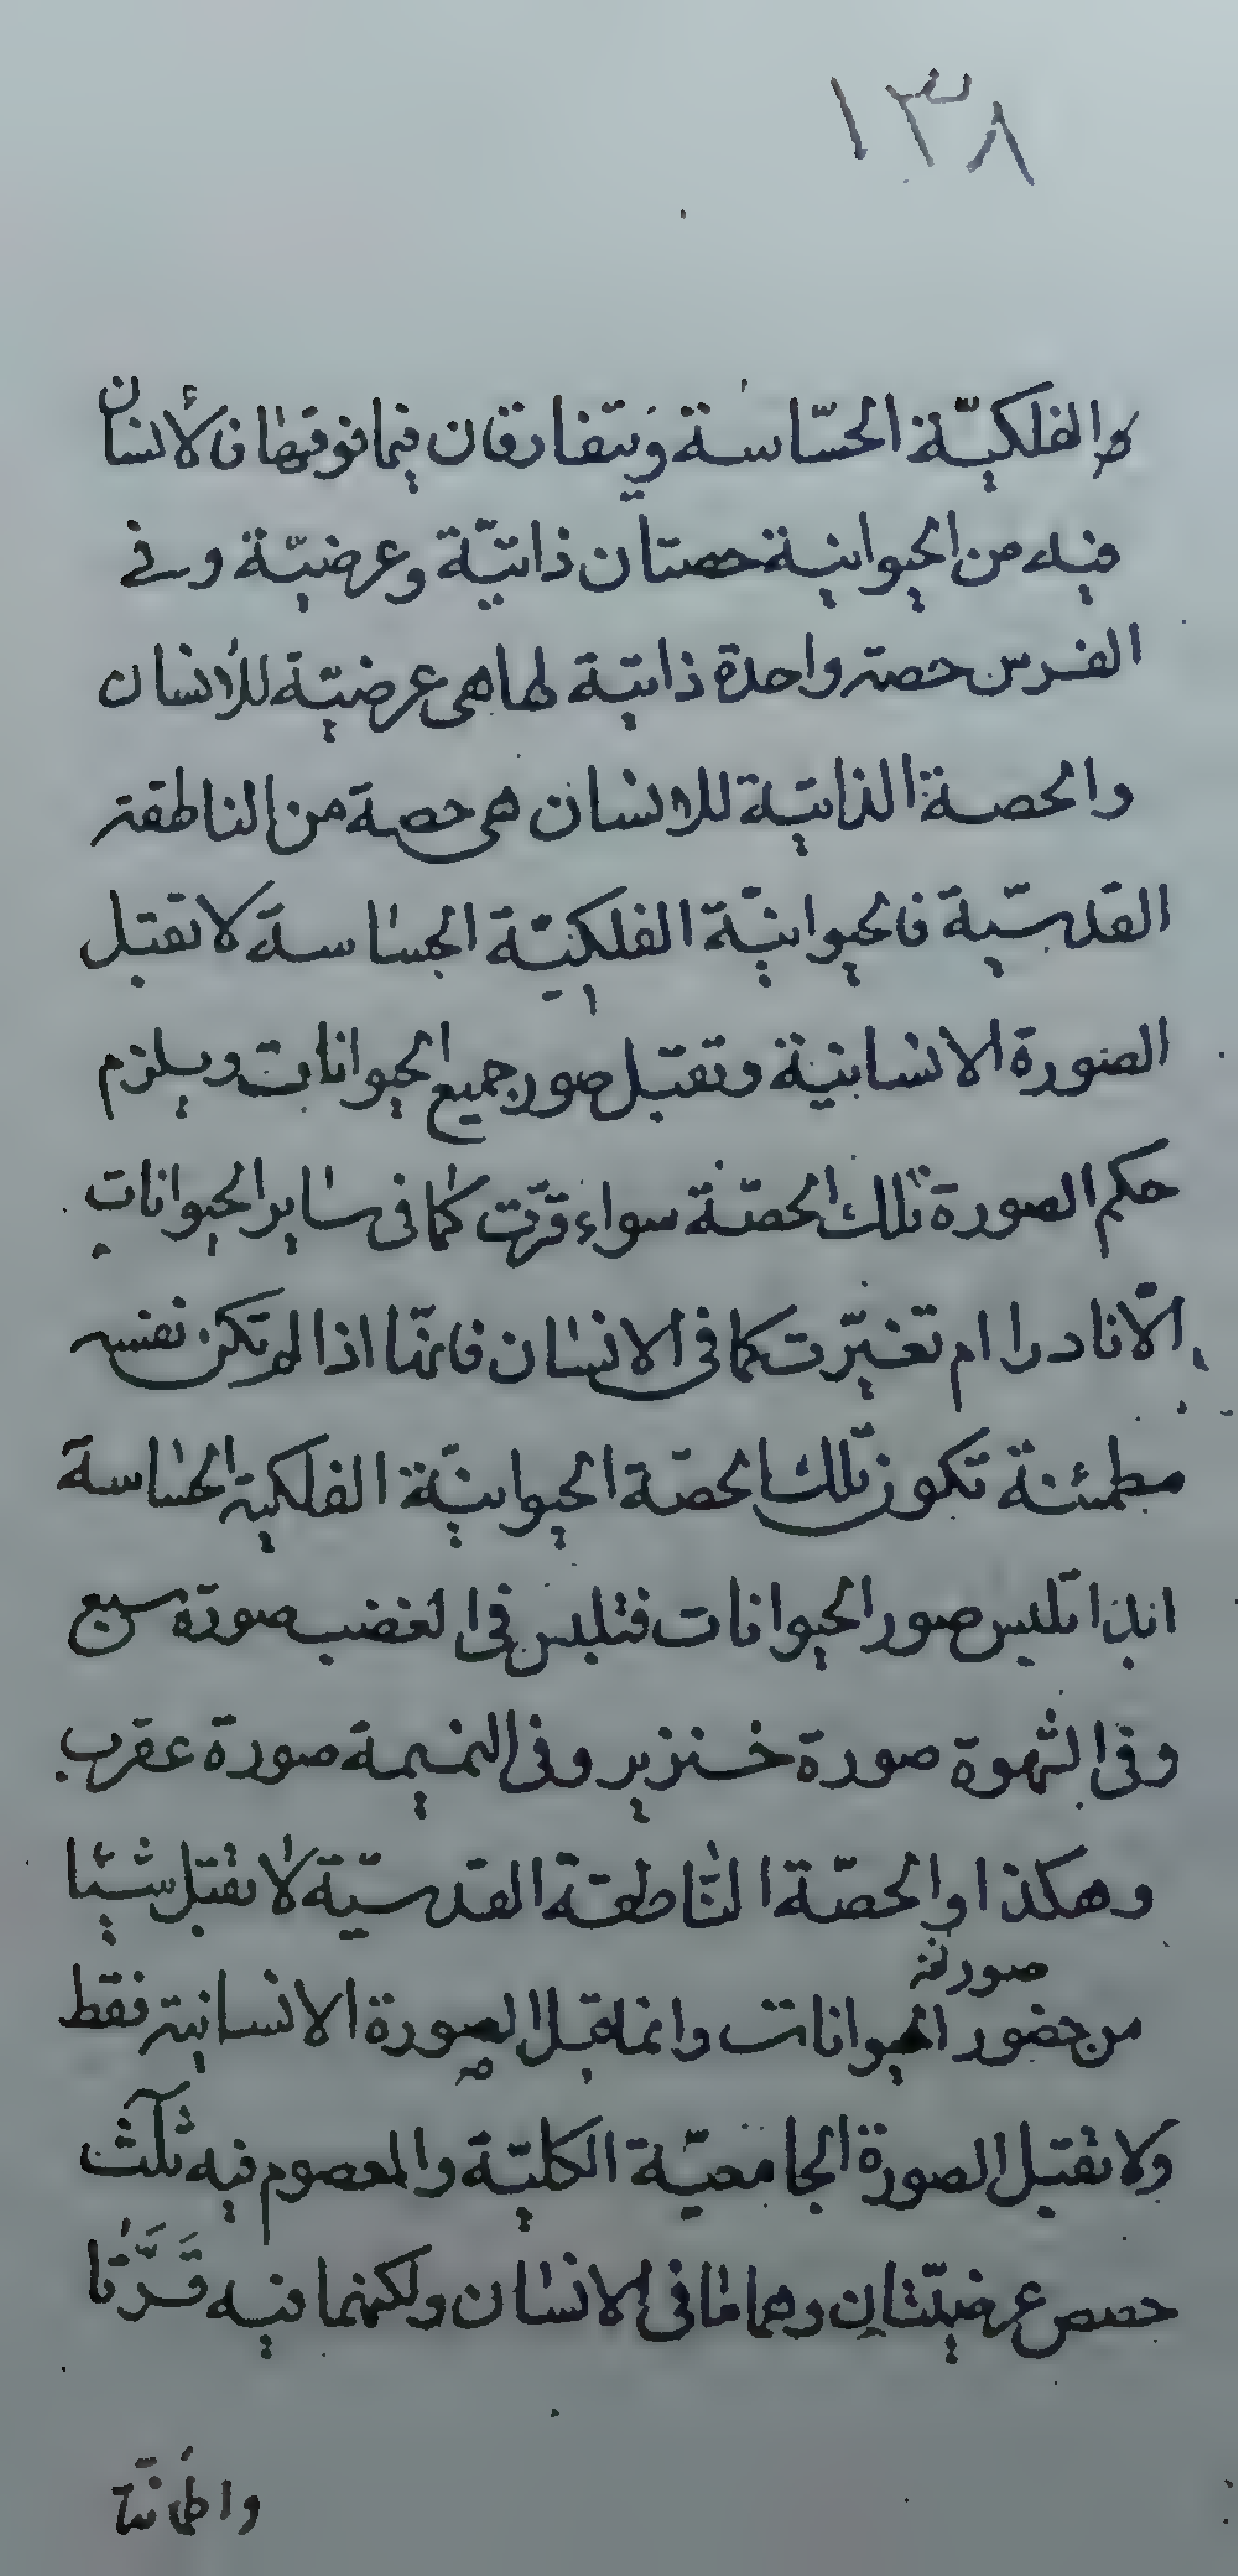 ١٣٨
الفلكيّة الحسّاسة ويتفارقان فيما فوقها فالأنسان
فيه من الحيوانية حصتان ذاتيّة وعرضيّة وفي
الفرس حصة واحدة ذاتية لها هي عرضيّة للأنسان
والحصة الذاتية للانسان هي حصة من الناطقة
القدسيّة فالحيوانيّة الفلكيّة الحساسة لا تقبل
الصورة الانسانية وتقبل صور جميع الحيوانات ويلزم
حكم الصورة تلك الحصّة سواء قرّت كما في ساير الحيوانات
الّا نادرا ام تغيّرت كما في الانسان فانّها اذا لم تكن نفسه
مطمئنة تكون تلك الحصّة الحيوانيّة الفلكية الحساسة
ابدا تلبس صور الحيوانات فتلبس في الغضب صورة سبع
وفي الشهوة صورة خنزير وفي النميمة صورة عقرب
وهكذا والحصّة النّاطقة القدسيّة لا تقبل شيئا
صورته
من حضور الحيوانات وانما تقبل الصورة الانسانية فقط
ولا تقبل الصورة الجامعيّة الكليّة والمعصوم فيه ثلث
حصص عرضيّتان وهما ما في الانسان ولكنهما فيه قَرَّتا
واطمانّتا